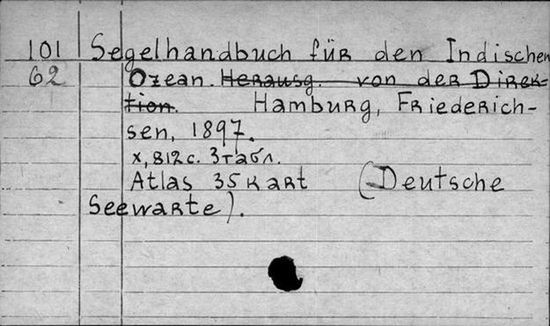 101 Segelhandbuch für den Indischen
62 Ozean. Herausg. von der Direk-
tion. Hamburg, Friederich-
sen, 1897.
x, 812 с. 3 табл.
Atlas 35 карт (Deutsche
Seewarte).